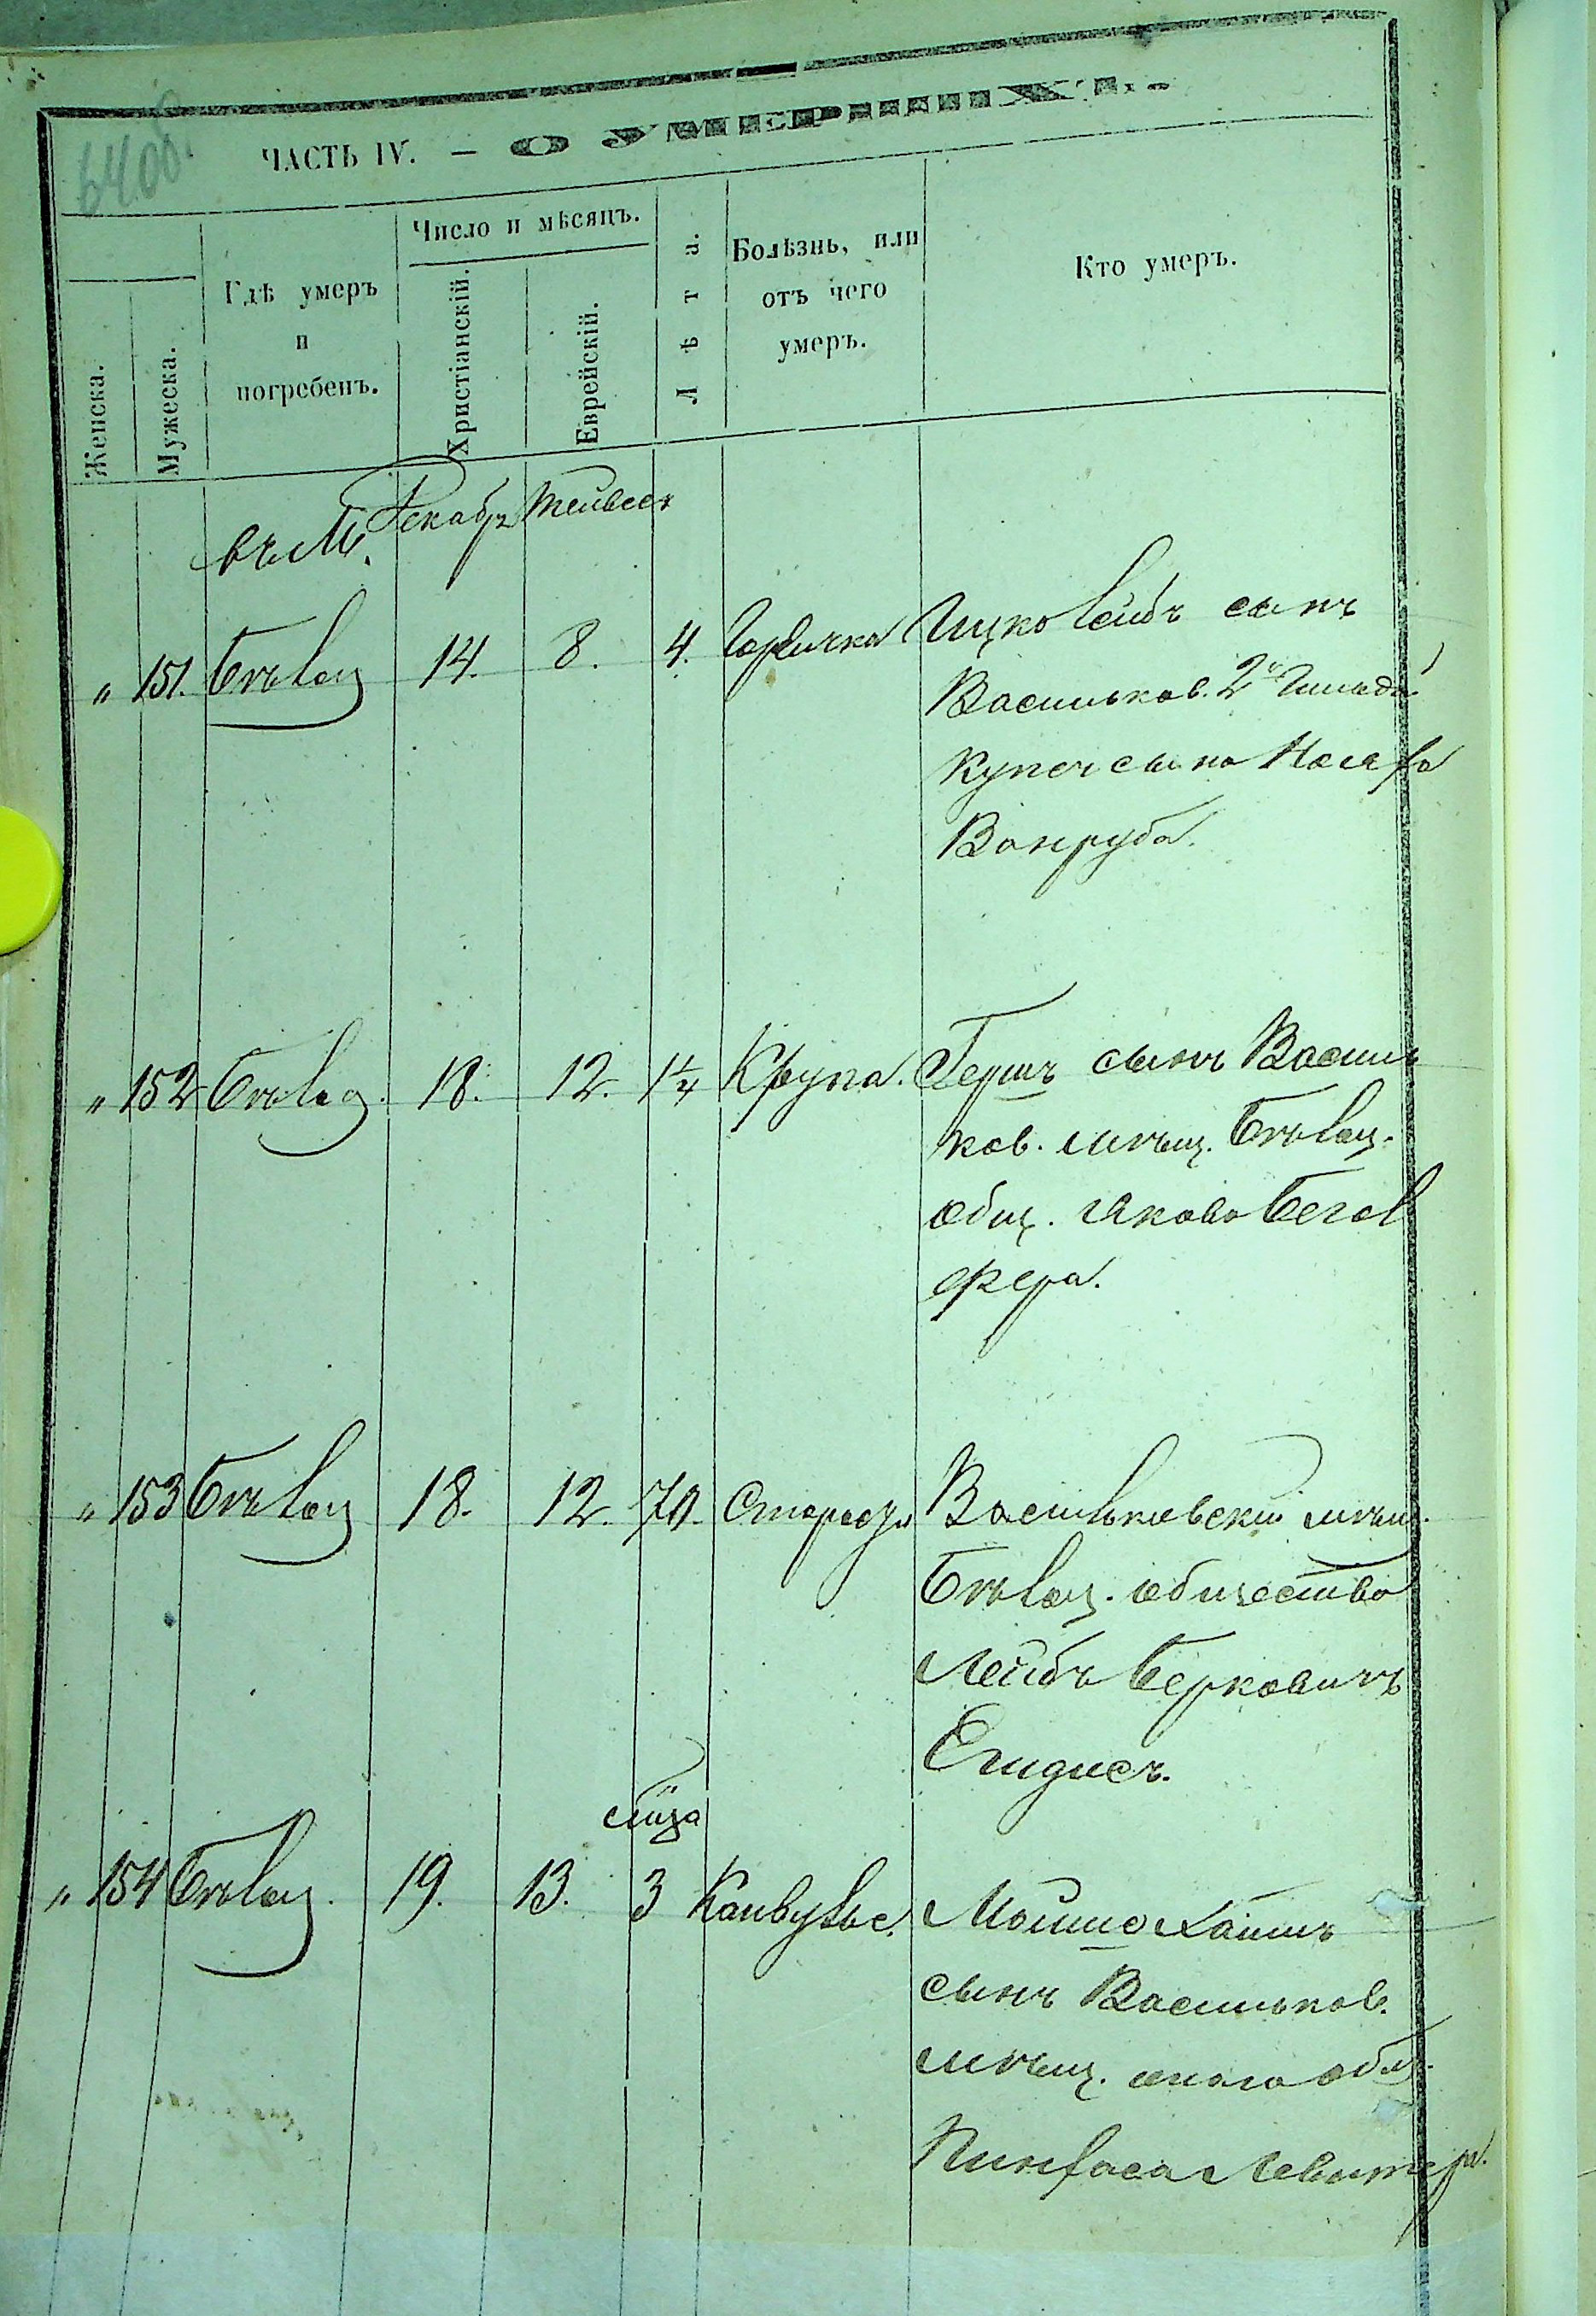 ЧАСТЬ IV. — О УМЕРШИХЪ.
Женска.
Мужеска.
Гдѣ умеръ
и
погребенъ.
Число и мѣсяцъ.
Христіанскій.
Еврейскій.
Лѣта.
Болѣзнь, или
отъ чего
умеръ.
Кто умеръ.
въ М. Декабр Тейвесъ
" 151. Бѣлоц 14. 8. 4. Горячка Ицко Лейбъ сынъ
Васильков. 2й Гильдіи
Купеч сына
" 152 Бѣлоц. 18. 12. 1¼ Крупа. Гершъ сынъ Василь
ков. мѣщ. Бѣлоц.
общ. Якова Бегел
фера.
" 153 Бѣлоц 18. 12. 70. Старость Васильковскій мѣщ.
Бѣлоц. общества
Лейбъ Берковичъ
" 154 Бѣлоц. 19. 13. 3 Мошко Хаимъ
сынъ Васильков.
мѣщ. общ.
Пинхаса